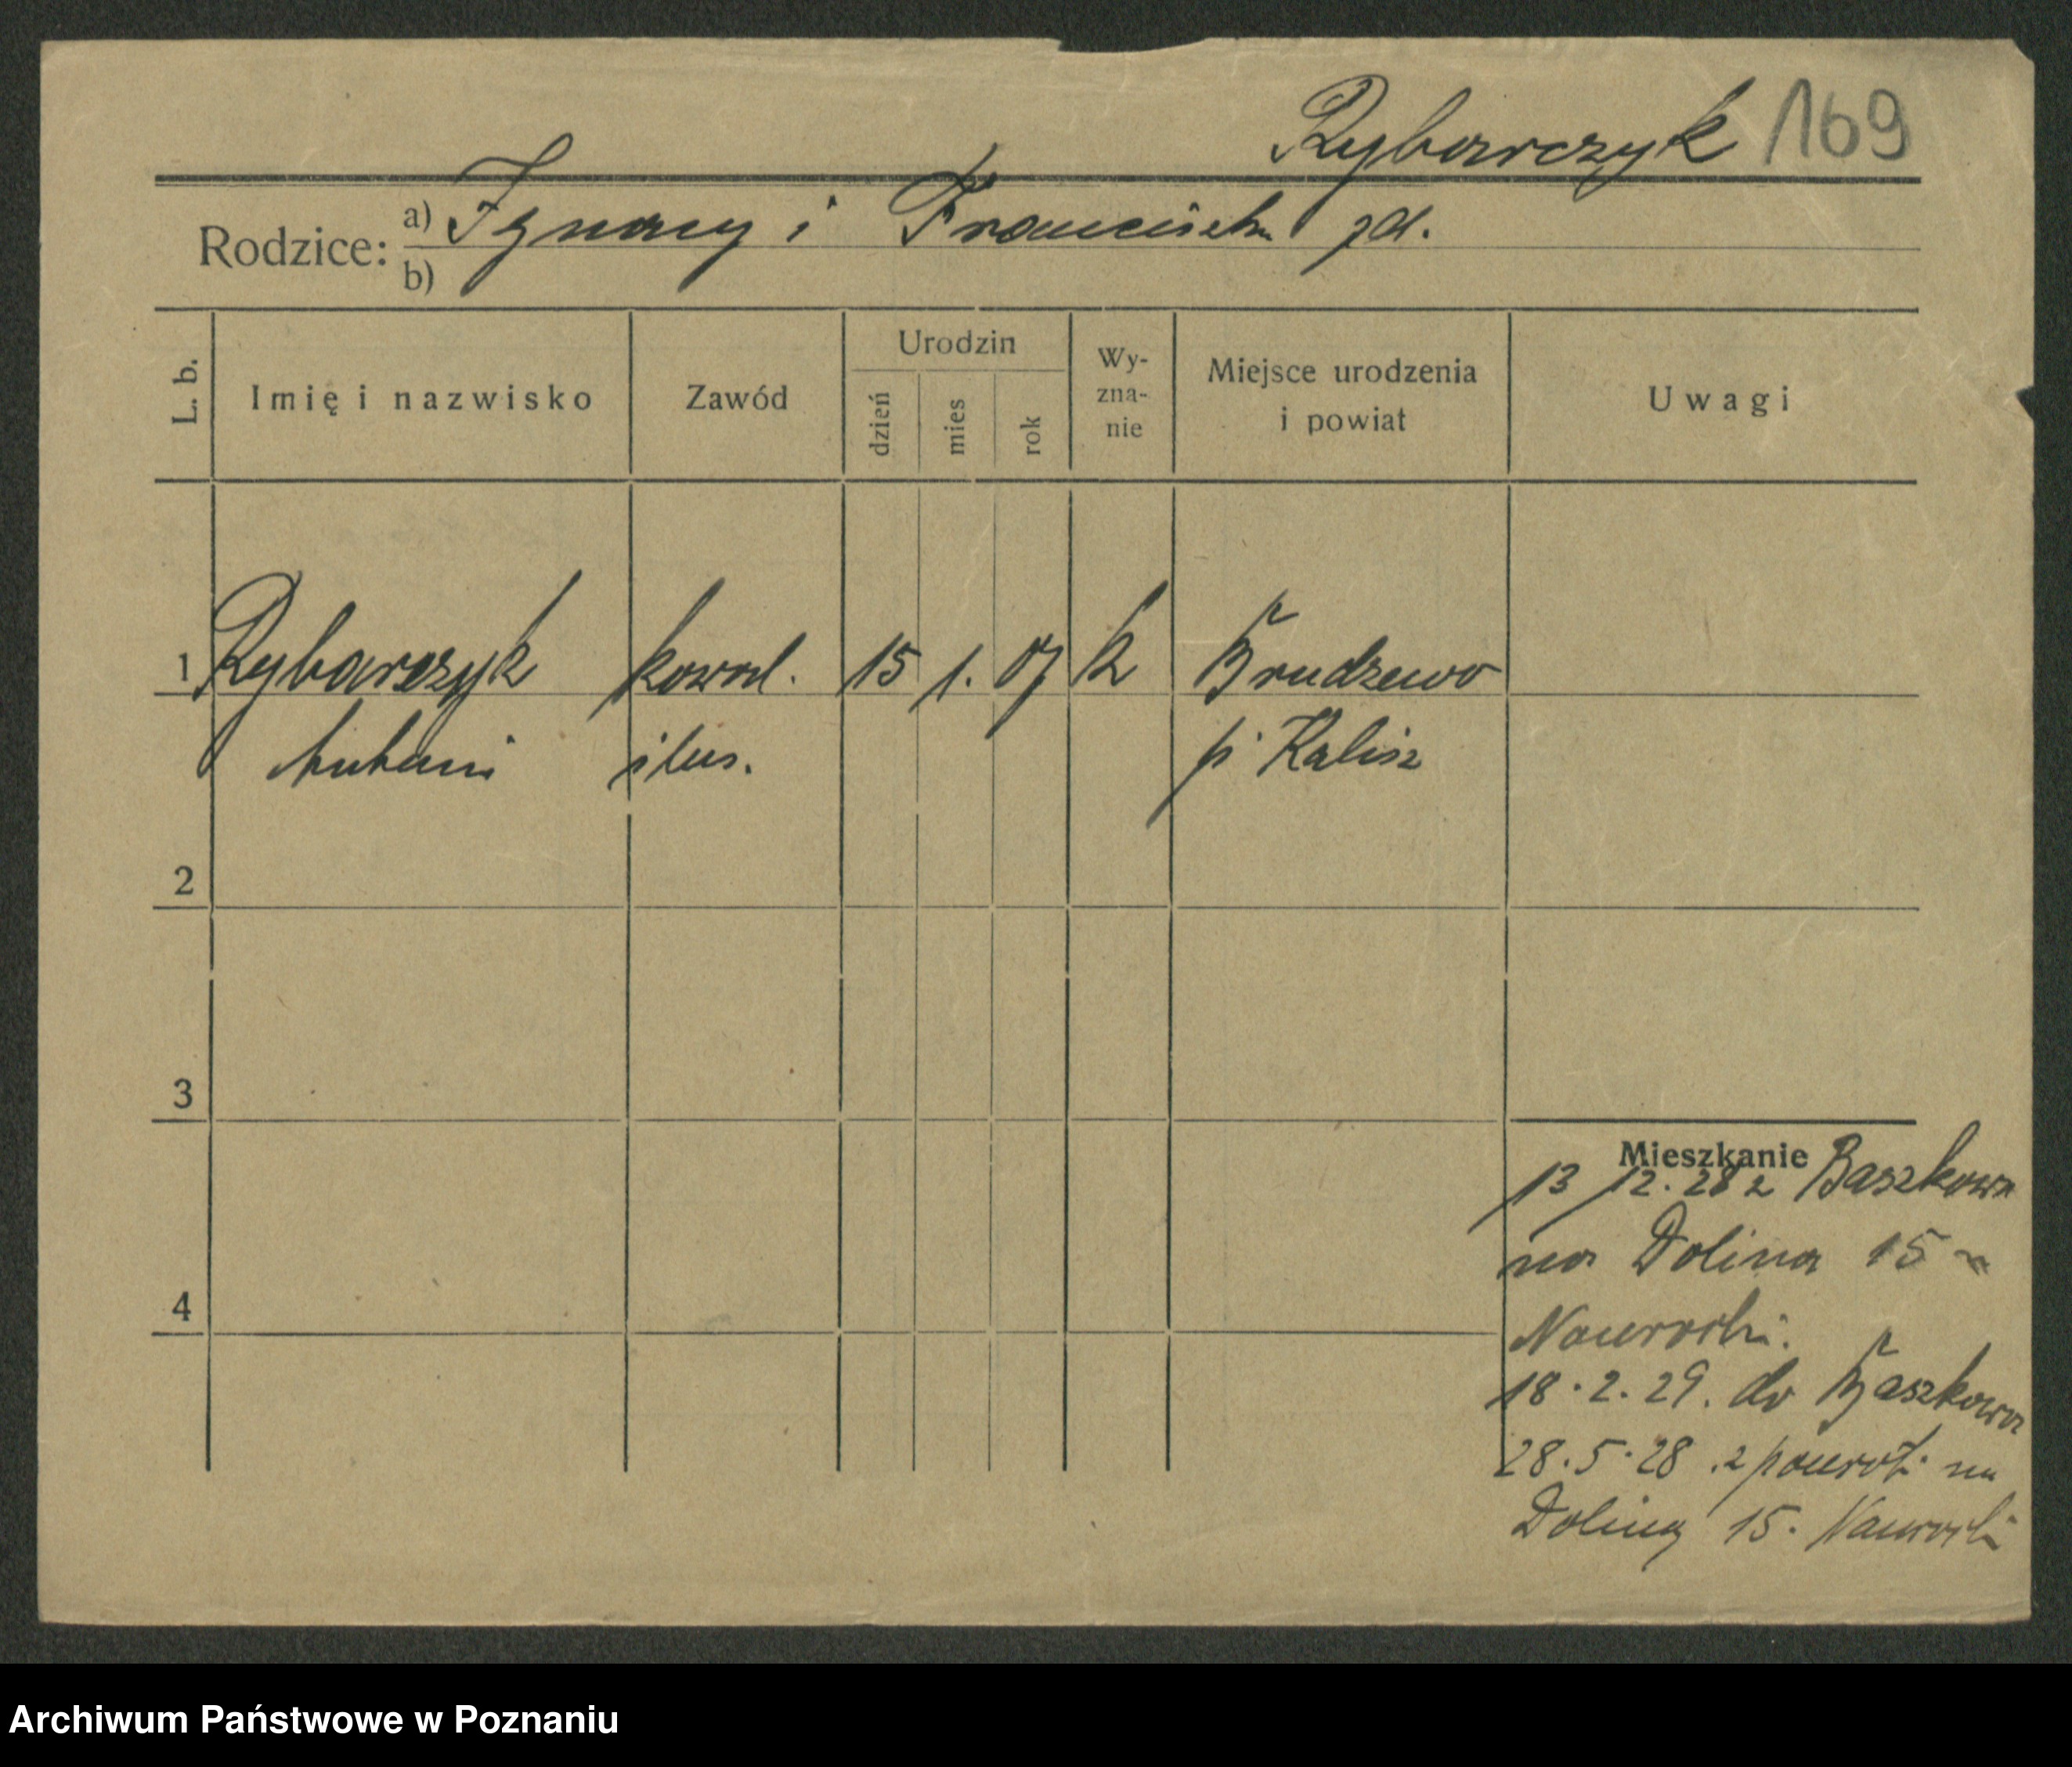 Rybarczyk 169
Rodzice: a) Ignacy i Franciszka zd.
b)
L. b. Imię i nazwisko Zawód Urodzin dzień mies rok Wy-zna-nie Miejsce urodzenia i powiat Uwagi
1 Rybarczyk kowal. 15 1. 07 k Brudzewo
Antoni ślus. p. Kalisz
2
3
4
Mieszkanie
13 12. 28 z Baszkowa
na Dolina 15
Nawrocki.
18. 2. 29. do Baszkowa
28. 5. 28 z powrot. na
Doliną 15. Nawrocki
Archiwum Państwowe w Poznaniu